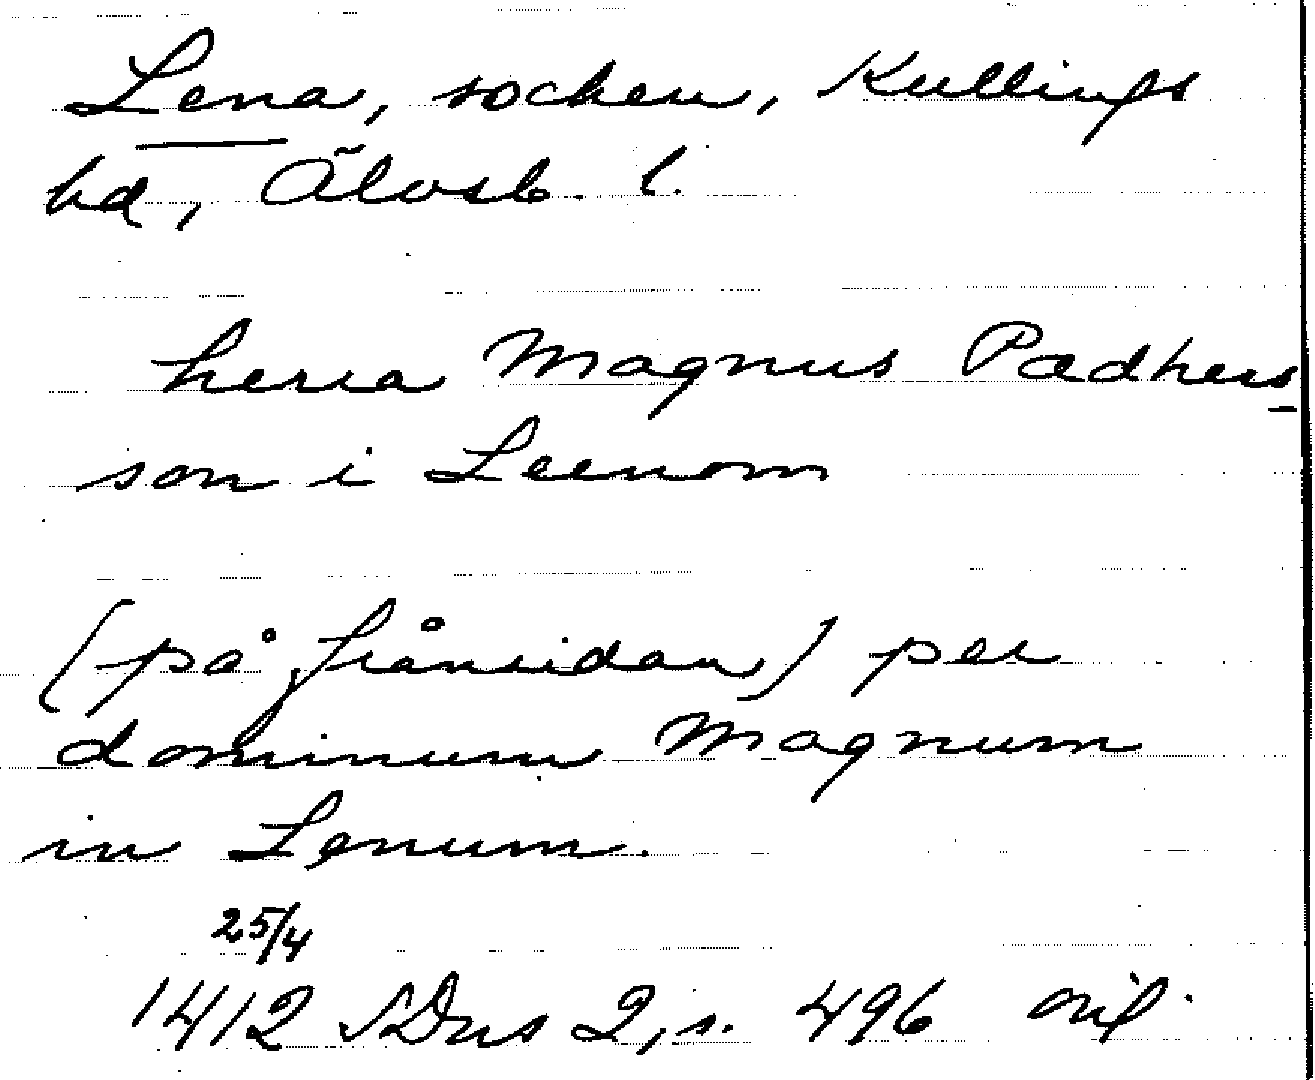 Lena, socken, Kullings
hd, Älvsb. l.
herra Magnus Pædhers-
son i Leenom
[på frånsidan] per
dominum Magnum
in Lenum.
25/4
1412 SDns 2, s. 496 orig.